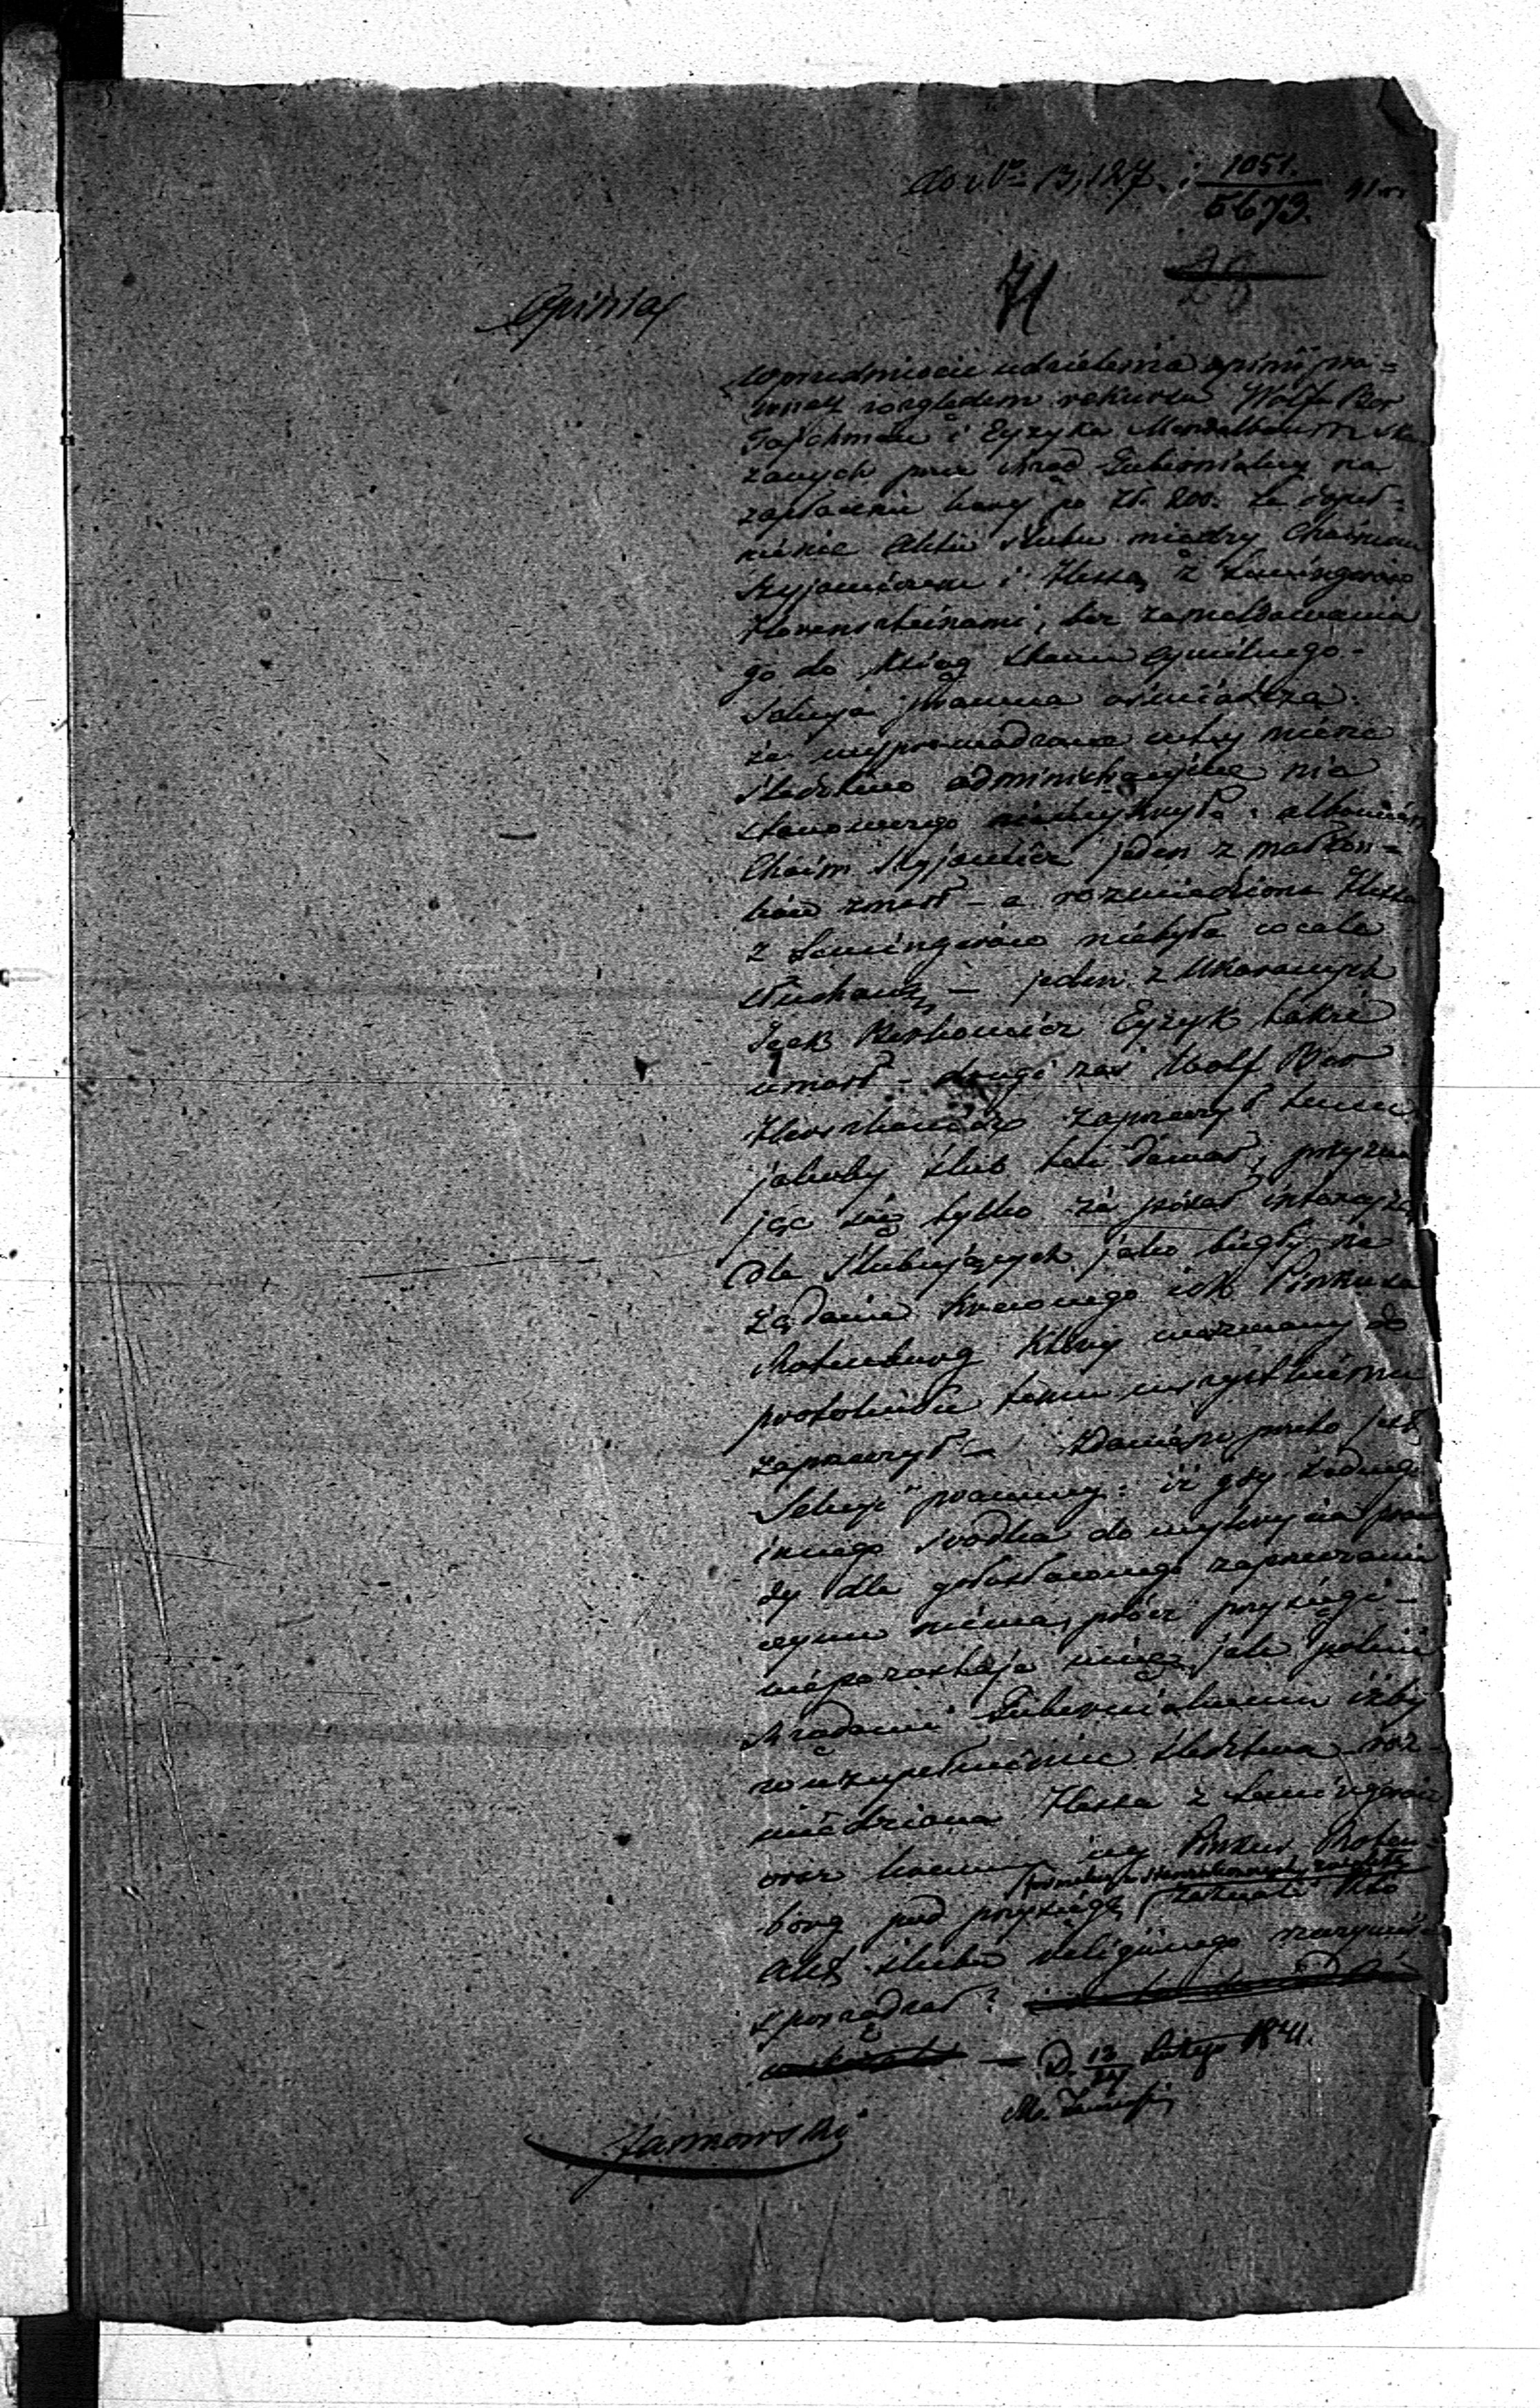 do No 13,127. i 1051./5673. 41
71
Opinia
W przedmiocie udzielenia opinii pra=
wnej względem rekursu Wolfa Ber
i Eyzyka ska
zanych przez Rząd Gubernialny na
zapłacenie kary po Zł. 200. za dopeł=
nienie Aktu ślubu między Chaimem
Szyjowiczem i Hessą z Lewingerów
bez zameldowania
go do Ksiąg Stanu Cywilnego.
Sekcya prawna oświadcza.
że wyprowadzone w tej mierze
śledztwo administracyjne nic
stanowczego niewykryło; albowiem
Chaim Szyjowicz jeden z małżon=
ków zmarł – a rozwiedziona Hessa
z Lewingerów niebyła wcale
słuchaną – jeden z Ukaranych
Icek Berkowicz Eyzyk także
umarł – drugi zaś Wolf Ber
Herszkowicz zaprzeczył temu
jakoby ślub ten dawał, przyzna
jąc się tylko że pisał intercyzę
dla ślubujących jako biegły na
żądanie krewnego ich Pinkusa
Rotenburg który wezwany do
protokułu temu wszystkiemu
zaprzeczył – Zdaniem przeto jest
Sekcyi prawnej: iż gdy żadnego
innego środka do wykrycia praw
dy dla gołosłownego zaprzeczenia
czynu niema, prócz przysięgi –
niepozostaje więcej jak polecić
Rządowi Gubernialnemu iżby
w uzupełnienie śledztwa roz=
wiedziona Hessa z Lewingerów
oraz krewny jej Pinkus Roten=
borg pod przysięgą zeznali kto
Akt ślubu religijnego rzeczywiście
sporządzał?
– D. 12/24 Lutego 1841.
Jarnowski